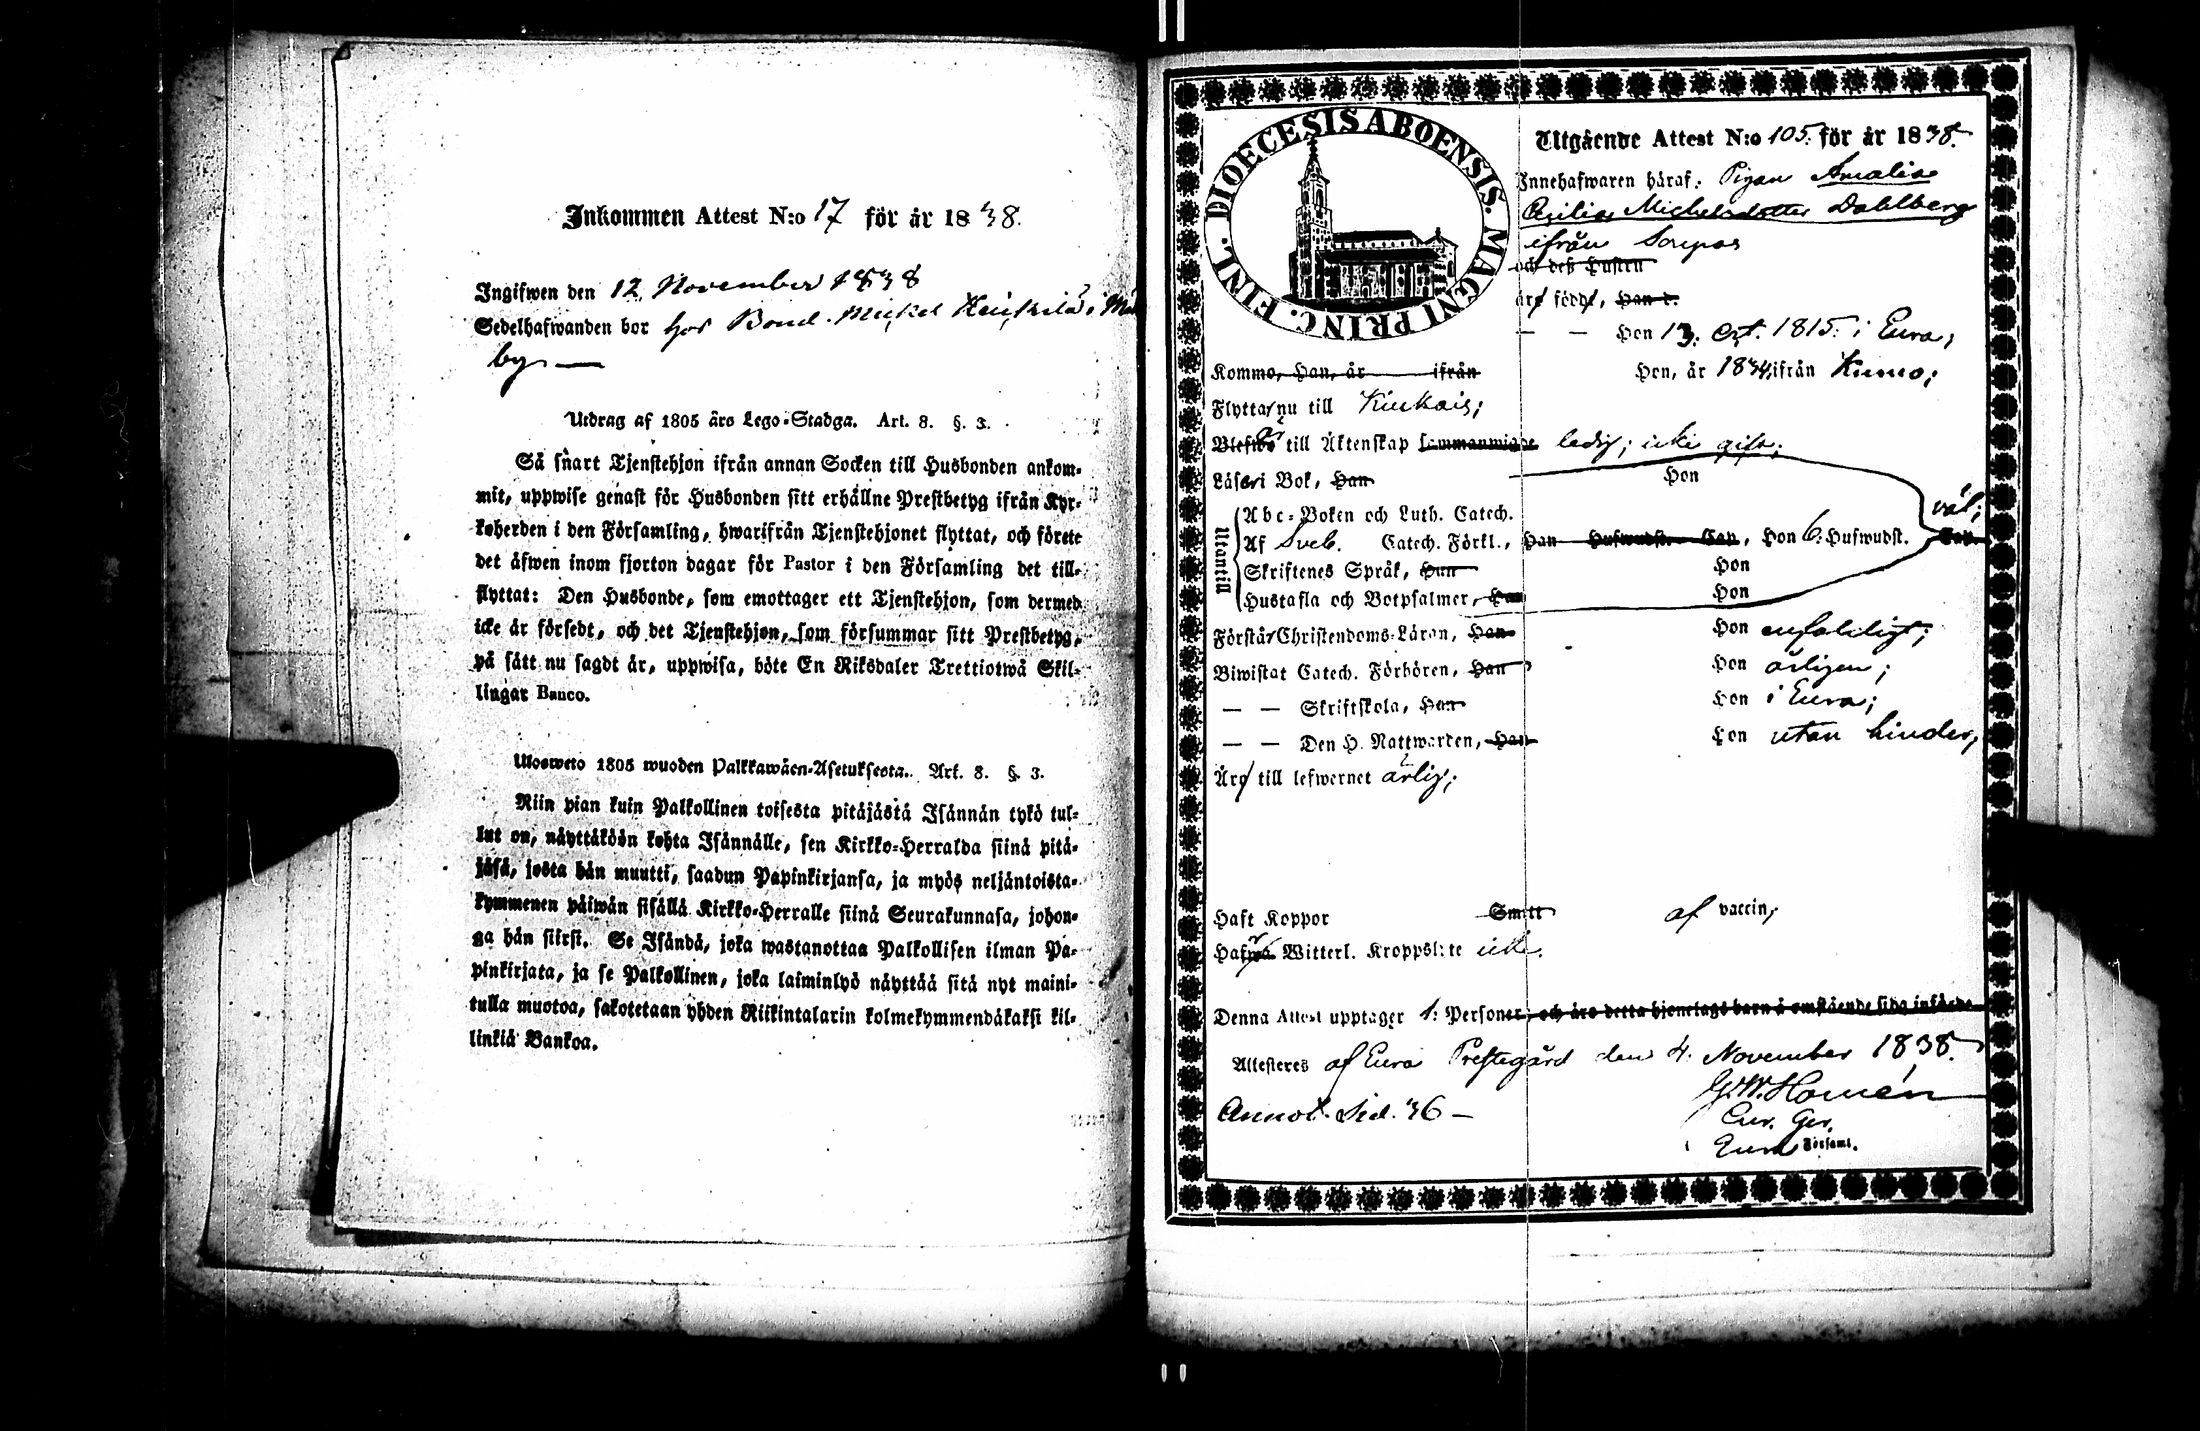 Inkommen Attest N:o 17 för år 1838.
Ingifwen den 12. November 1838
Sedelhafwanden bor hos Bond. Mickel Heickilä i
by —
Utdrag af 1805 års Lego-Stadga. Art. 8. §. 3.
Så snart Tjenstehjon ifrån annan Socken till Husbonden ankom-
mit, uppwise genast för Husbonden sitt erhållne Prestbetyg ifrån Kyr-
koherden i den Församling, hwarifrån Tjenstehjonet flyttat, och förete
det äfwen inom fjorton dagar för Pastor i den Församling det till-
flyttat: Den Husbonde, som emottager ett Tjenstehjon, som dermed
icke är försedt, och det Tjenstehjon, som försummar sitt Prestbetyg,
på sätt nu sagdt är, uppwisa, böte En Riksdaler Trettiotwå Skil-
lingar Banco.
Ulosweto 1805 wuoden Palkkawäen-Asetuksesta. Art. 8. §. 3.
Niin pian kuin Palkollinen toisesta pitäjästä Isännän tykö tul-
lut on, näyttäköön kohta Isännälle, sen Kirkko-Herralda siinä pitä-
jäsä, josta hän muutti, saadun Papinkirjansa, ja myös neljäntoista-
kymmenen päiwän sisällä Kirkko-Herralle siinä Seurakunnasa, johon-
ga hän siirst. Se Isändä, joka wastanottaa Palkollisen ilman Pa-
pinkirjata, ja se Palkollinen, joka laiminlyö näyttää sitä nyt maini-
tulla muotoa, sakotetaan yhden Riikintalarin kolmekymmendäkaksi kil-
linkiä Bankoa.
DIOECESIS ABOENSIS. MAGNI PRINC. FINL.
Utgående Attest N:o 105. för år 1838.
Innehafwaren häraf. Pigan Amalia
Cecilia Michelsdotter Dahlberg
ifrån Sorpas
och deß Hustru
äro född, Han d.
— — Hon 13. Oct. 1815. i Eura;
Kommo, Han, år ifrån Hon, år 1834, ifrån Kumo;
Flytta nu till Kiukais;
Blefwo är till Äktenskap sammanwigde ledig; icke gift;
Läser i Bok, Han Hon
Utantill
Abc-Boken och Luth. Catech. väl;
Af Sveb. Catech. Förkl., Han Hufwudst. Cap, Hon 6. Hufwudst. Cap.
Skriftenes Språk, Han Hon
Hustafla och Botpsalmer, Han Hon
Förstår Christendoms-Läran, Han Hon enfaldigt;
Biwistat Catech. Förhören, Han Hon årligen;
— — Skriftskola, Han Hon i Eura;
— — Den H. Nattwarden, Han Hon utan hinder,
Äro till lefwernet ärlig;
Haft Koppor Smitt af vaccin,
Hafwa Witterl. Kroppslyte icke.
Denna Attest upptager 1. Personer, och äro detta hjonelags barn å omstående sida införde
Attesteres af Eura Prestegård den 4. November 1838.
G. W. Homén
Annot. Sid. 36 —
Cur. Ger.
Eura Församl.